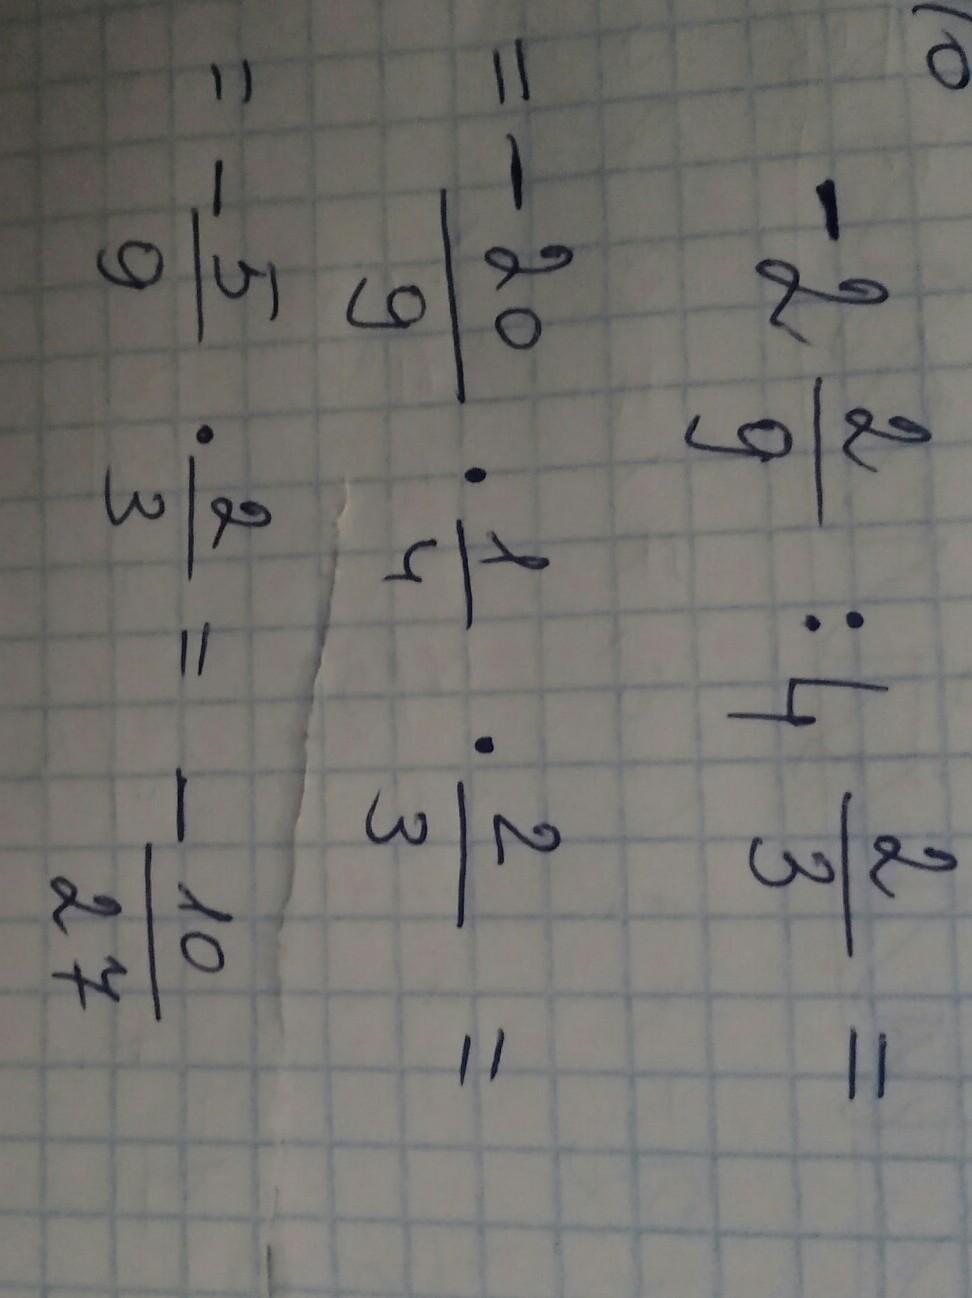 10
- 2 2/9 : 4 2/3 =
= - 20/9 · 1/4 · 2/3 =
= - 5/9 · 2/3 = - 10/27